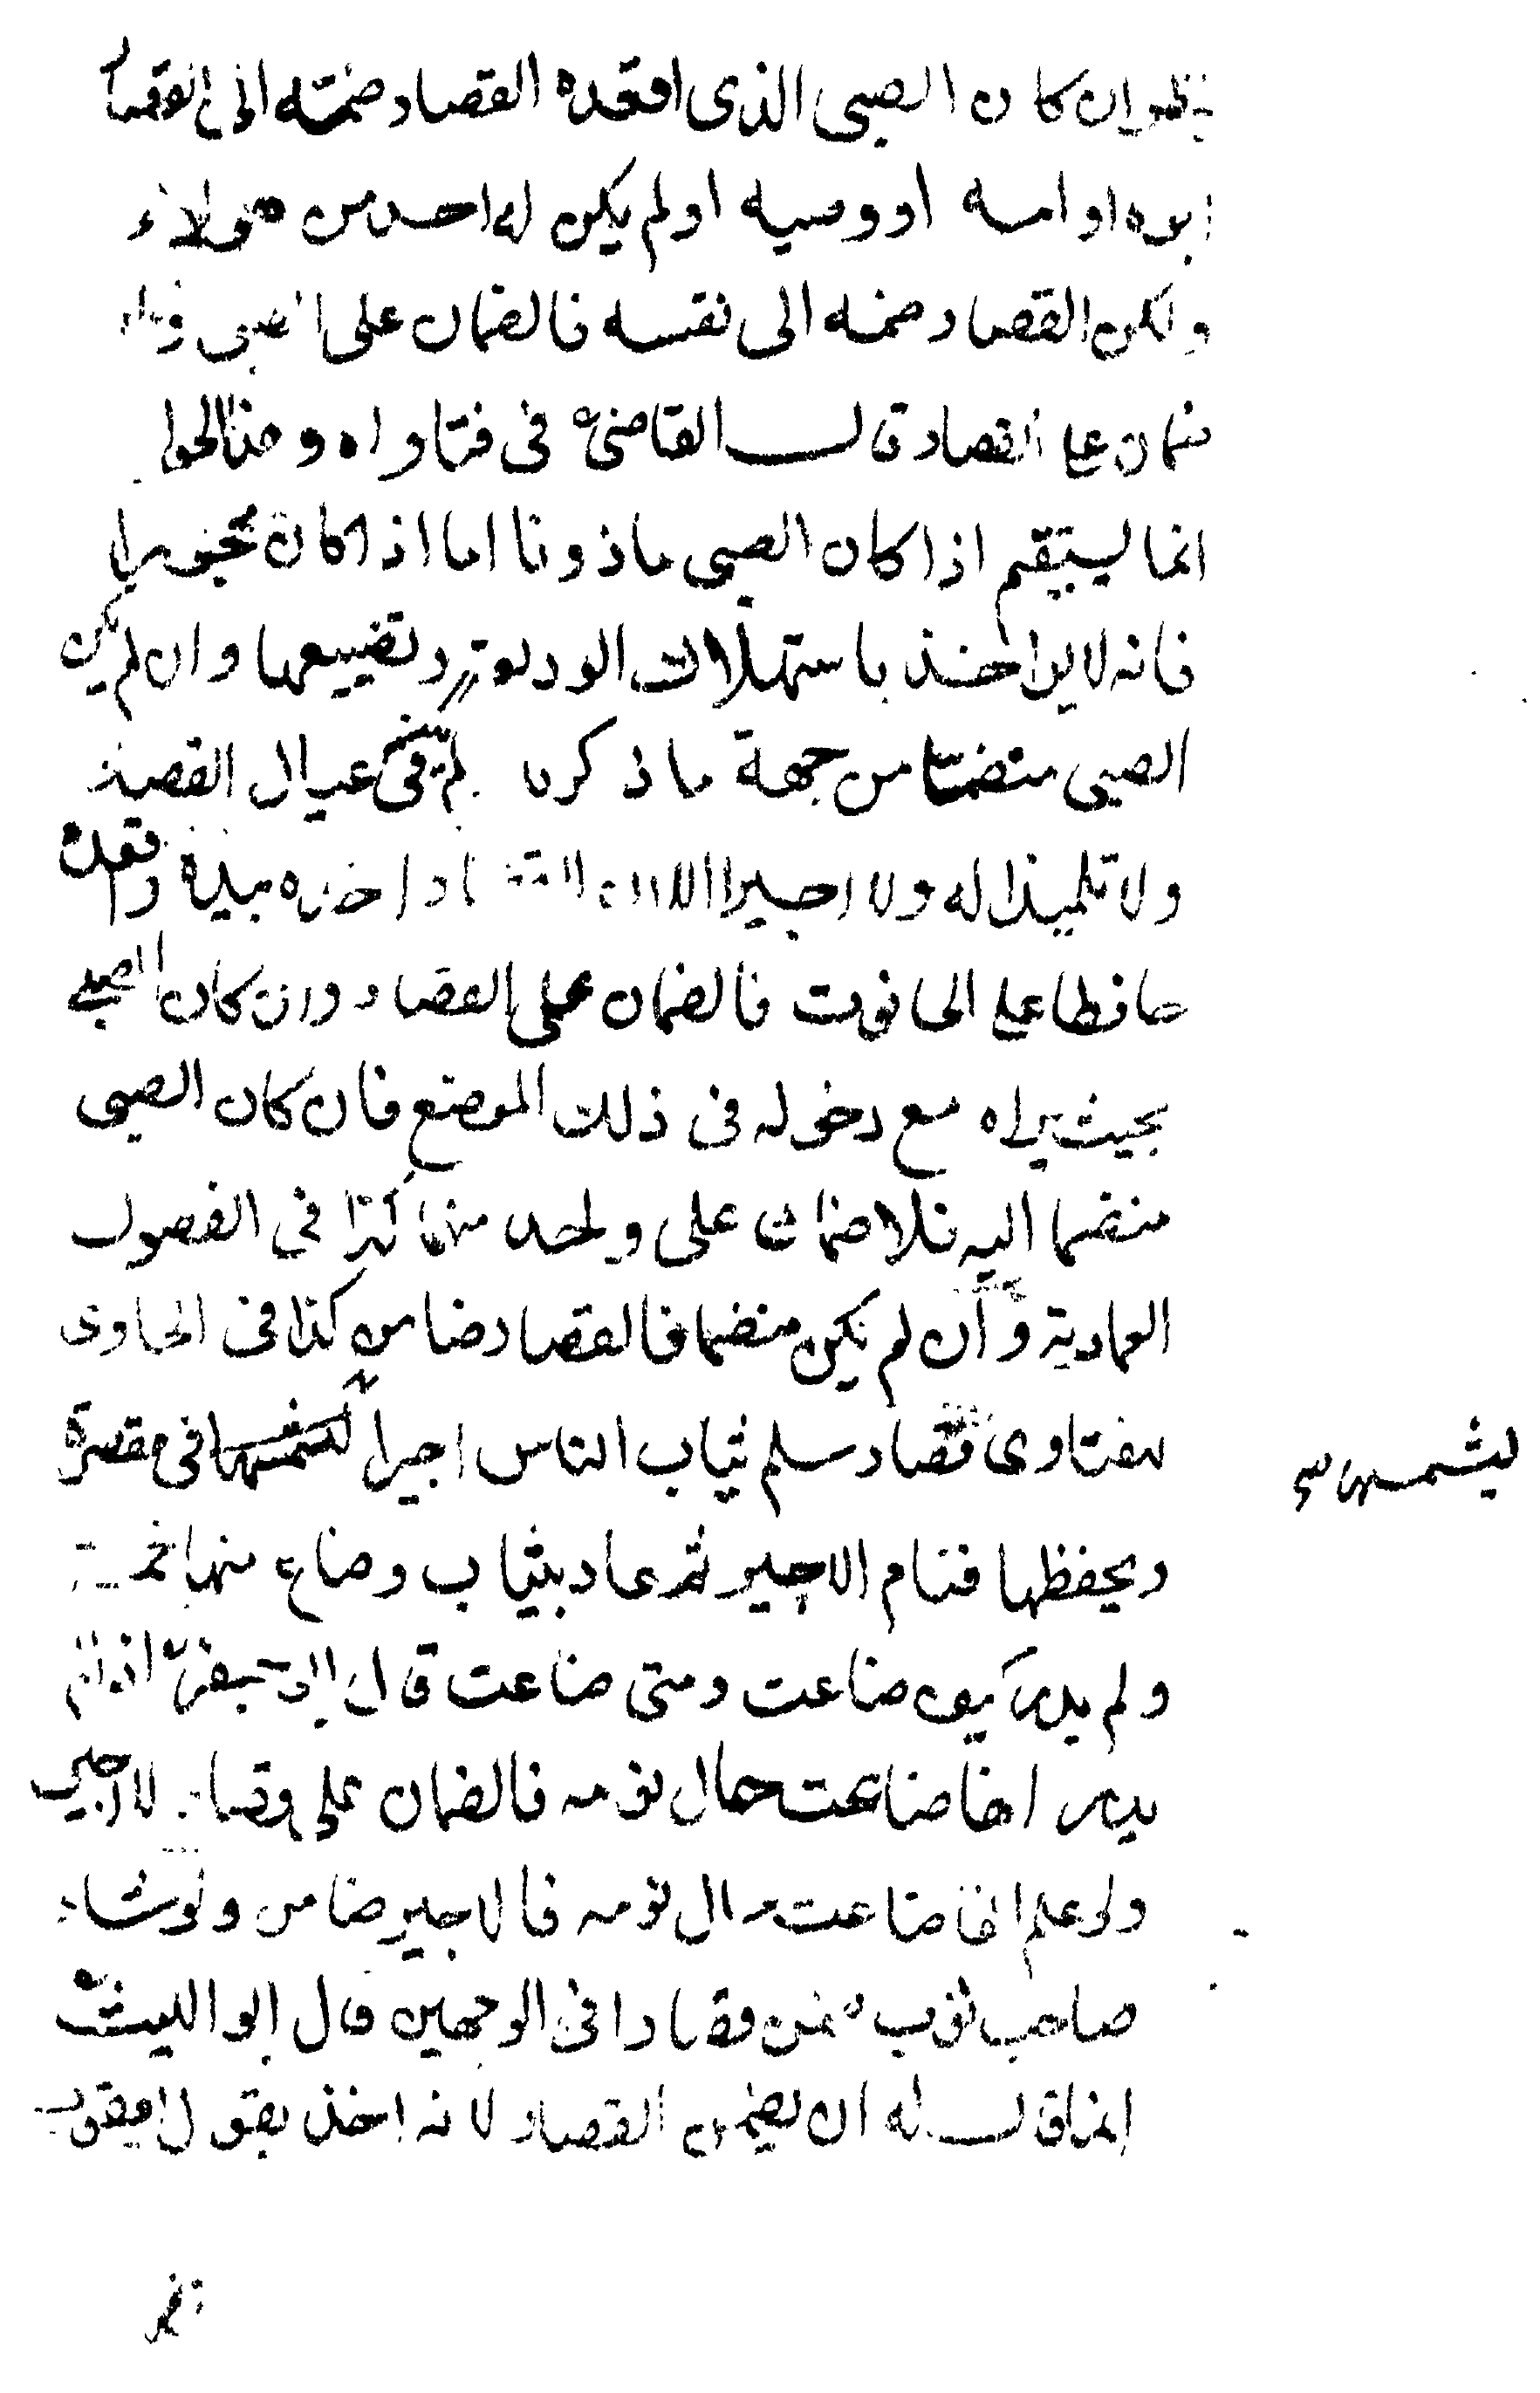 ينظر ان كان الصبى الذى اقعده القصار ضمته الى القصار
ابوه او امه او وصيه او لم يكن له احد من هولاء
ولكن القصار ضمه الى نفسه فالضمان على الصبى ولا
ضمان على القصار قال القاضى فى فتاواه وهذا الجواب
انما يستقيم اذا كان الصبى ماذونا اما اذا كان محجورا
فانه لا يواخذ باستهلاك الوديعة وتضييعها وان لم يكن
الصبى منضما من جهة ما ذكرنا لم يكن فى عيال القصار
ولا تلميذا له ولا اجيرا اخذه بيده واقعده
حافظا على الحانوت فالضمان على القصار وان كان الصبى
بحيث يراه مع دخوله فى ذلك الموضع فان كان الصبى
منضما اليه فلا ضمان على واحد منهما كذا فى الفصول
العمادية وان لم يكن منضما فالقصار ضامن كذا فى الحاوى
للفتاوى قصار سلم ثياب الناس اجيرا ليشمسها فى مقصرة
ليشمسها
ويحفظها فنام الاجير ثم عاد بثياب وضاع منها خمسة
ولم يدر كيف ضاعت ومتى ضاعت قال ابو جعفر اذا لم
يدر انها ضاعت حال نومه فالضمان على قصار لا اجير
ولو علم انها ضاعت حال نومه فالاجير ضامن ولو شاء
صاحب ثوب ضمن قصارا فى الوجهين قال ابو الليث
انما قال له ان يضمن القصار لانه اخذ بقول ابى يوسف